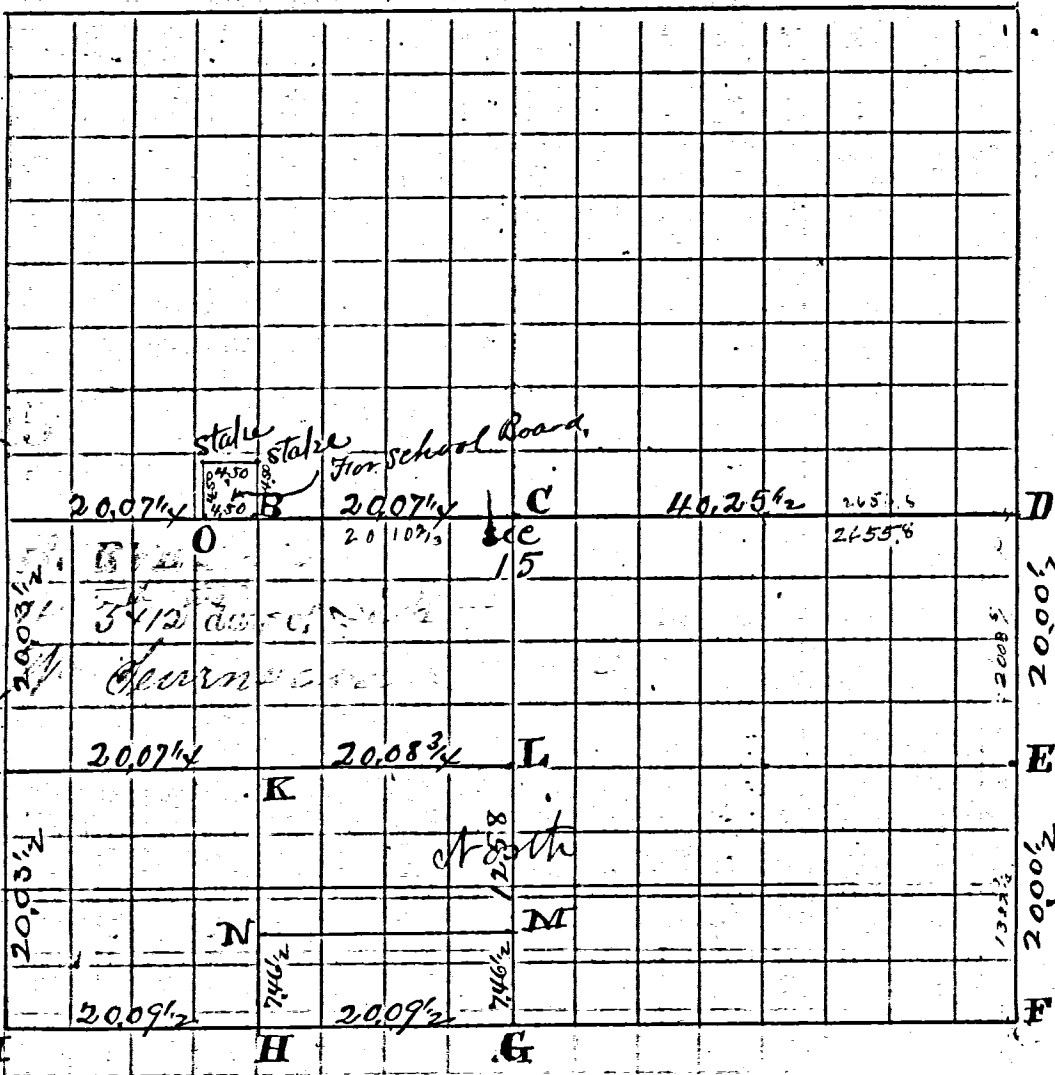 stake
stake
For school Board.
4.50
4.50
4.50
4.50
20.07 1/4
B
20.07 1/4
C
40.25 1/2
D
O
Sec
15
26558
20.03 1/2
20.00 1/2
20.07 1/4
20.08 3/4
L
E
K
20.03 1/2
12.58
North
20.00 1/2
N
M
7.46 1/2
7.46 1/2
20.09 1/2
20.09 1/2
F
H
G